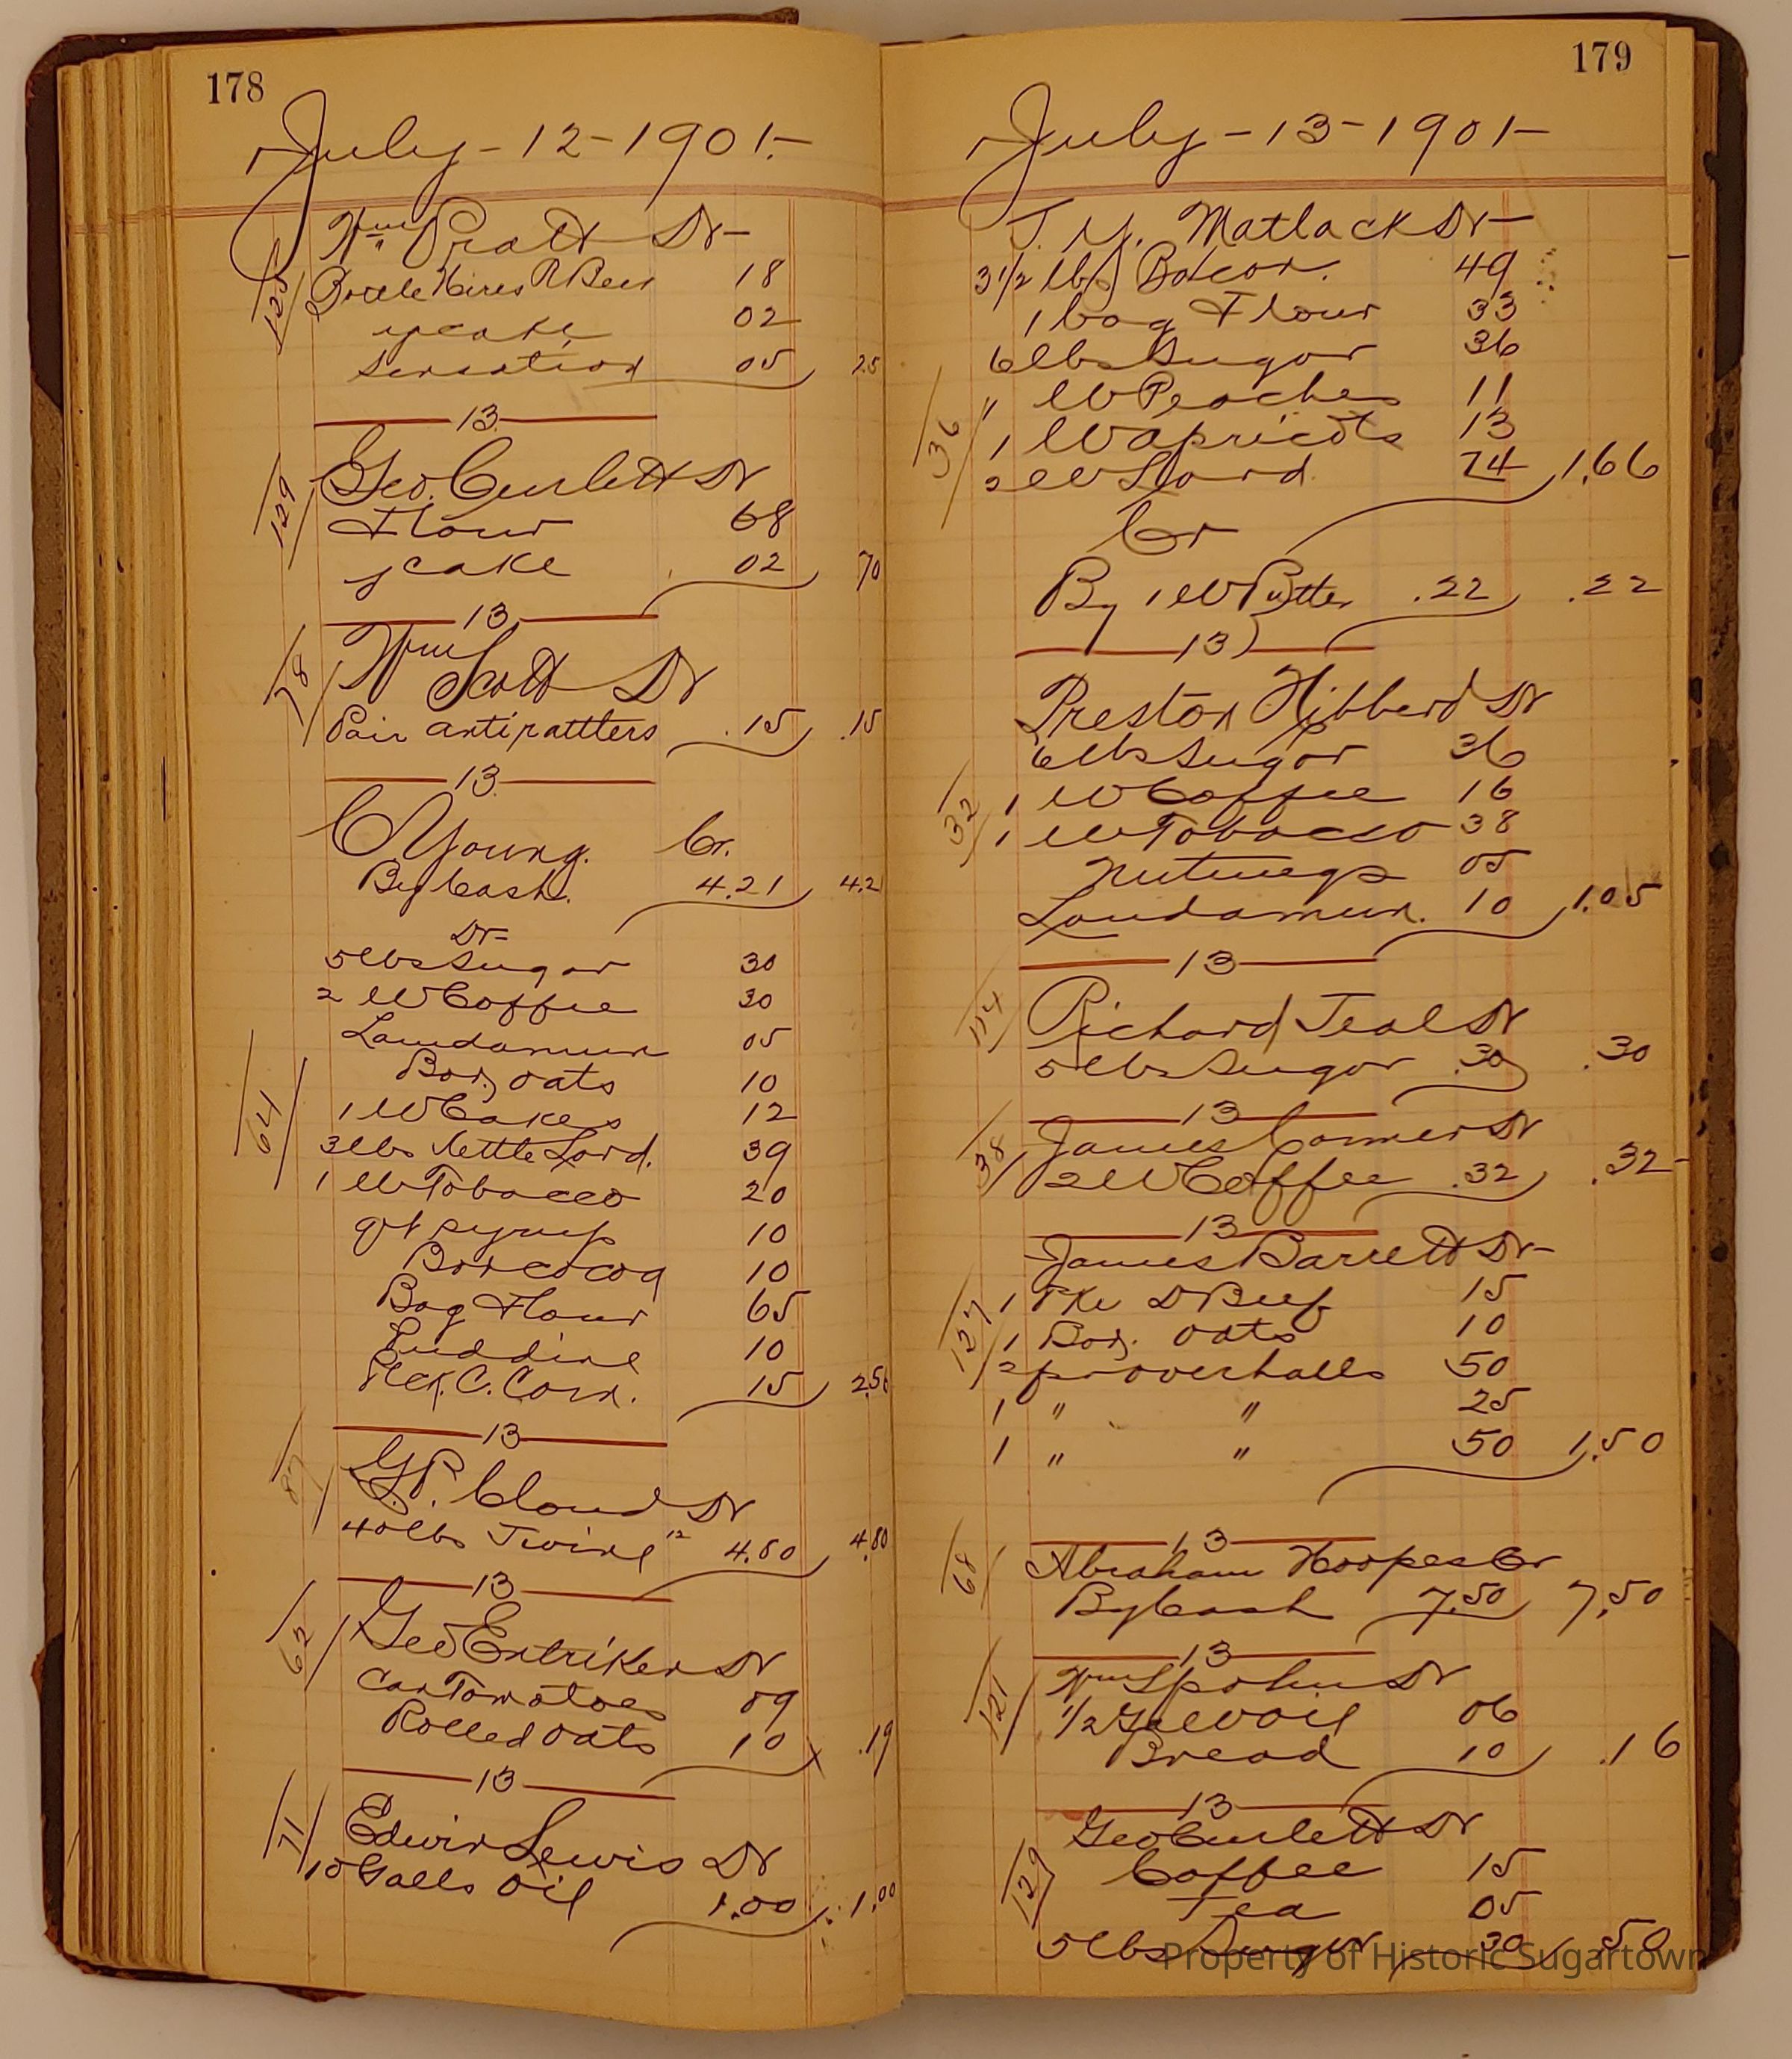 178
July - 12 - 1901.-
125
Wm Pratt Dr-
Bottle Hires R Beer 18
ycake 02
Sensation 05 25
13.
129
Geo. Curlett Dr
Flour 68
ycake 02 70
13.
78
Wm Scott Dr
Pair antirattlers .15 .15
13.
C Young. Cr.
By Cash. 4.21 4.2
Dr-
5 lbs Sugar 30
2 lb Coffee 30
Laudamum 05
Box oats 10
64
1 lb Cakes 12
3 lbs Kettle Lard. 39
1 lb Tobacco 20
qt syrup 10
Box cocoa 10
Bag Flour 65
Puddine 10
Pck. C. Corn. 15 2.56
13
87
G. P. Cloud Dr
40 lbs Twine 12 4.80 4.80
13
62
Geo Entriken Dr
Can Tomatoes 09
Rolled oats 10 .19
13
71
Edwin Lewis Dr
10 Galls Oil 1.00 1.00
179
July - 13 - 1901-
J. Y. Matlack Dr-
3 1/2 lbs Bacon. 49
1 bag Flour 33
6 lbs Sugar 36
36
" lb Peaches 11
1 lb apricots 13
2 lb Lard 24 1.66
Cr
By 1 lb Butter .22 .22
13
Preston Hibberd Dr
6 lbs Sugar 36
32
1 lb Coffee 16
1 lb Tobacco 38
Nutmegs 05
Laudamum. 10 1.05
13
114
Richard Teal Dr
5 lbs Sugar .30 .30
13
38
James Conner Dr
2 lb Coffee .32 .32-
13
James Barrett Dr-
127
1 Pke D Beef 15
1 Box. oats 10
2 pr overhalls 50
1 " " 25
1 " " 50 1.50
13
68
Abraham Hoopes Cr
By Cash 7.50 7.50
13
121
Wm Spohn Dr
1/2 Gal Oil 06
Bread 10 .16
13
129
Geo Curlett Dr
Coffee 15
Tea 05
5 lbs Sugar 30 .50
Property of Historic Sugartown